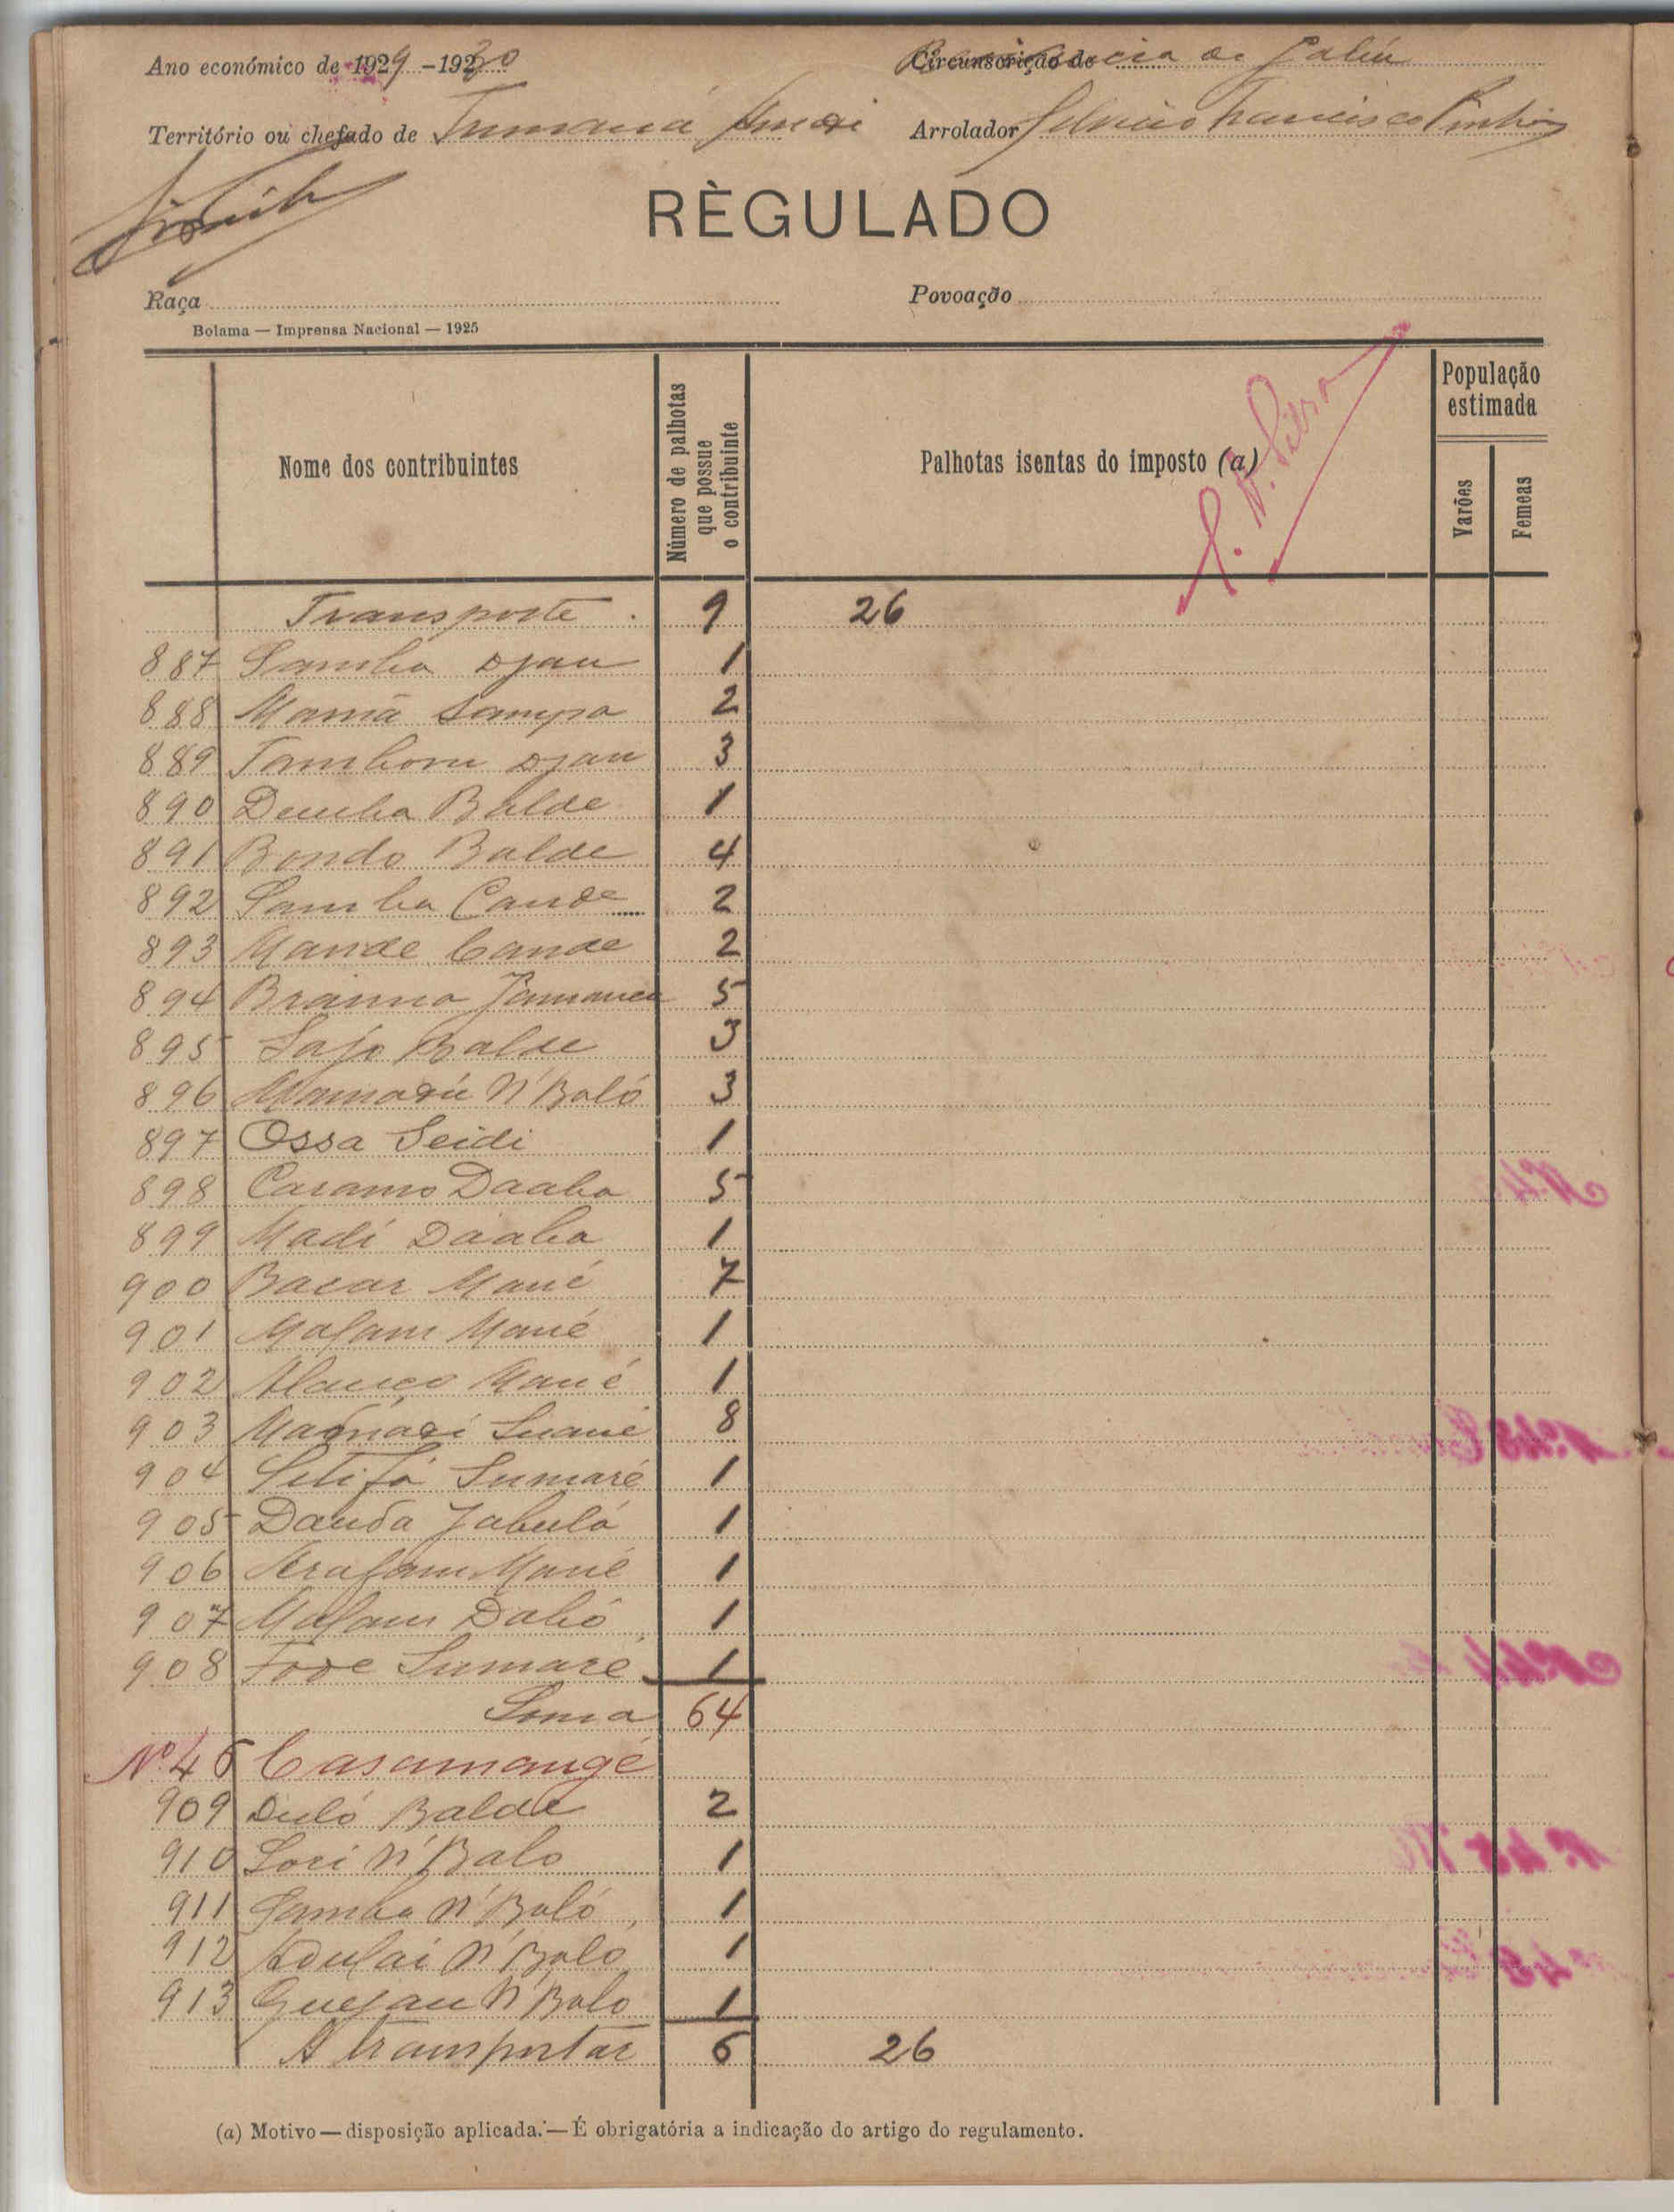 Ano económico de 1929 - 1930
Circunscrição de
Território ou chefado de Tumaná
Arrolador Francisco Pinho
RÈGULADO
Raça
Povoação
Bolama — Imprensa Nacional — 1925
Nome dos contribuintes
Número de palhotas que possue o contribuinte
Palhotas isentas do imposto (a)
População estimada
Varões
Femeas
Transporte 9 26
887 Samba Djau 1
888 Mamã Sampa 2
889 Djau 3
890 Demba Balde 1
891 Bondo Balde 4
892 Samba Cande 2
893 Mande Cande 2
894 Braima 5
895 Sajo Balde 3
896 Mamadú N'Baló 3
897 Ossa Seidi 1
898 Caramo Daaba 5
899 Madí Daaba 1
900 Bacar Mané 7
901 Malam Mané 1
902 Mané 1
903 Suané 8
904 Sitifá Sumaré 1
905 Dauda Jabulá 1
906 Arafam Mané 1
907 Malam Dabó 1
908 Fode Sumaré 1
Soma 64
Nº 46 Casamangé
909 Duló Balde 2
910 Sori N'Balo 1
911 Samba N'Baló 1
912 Adulai N'Balo 1
913 N'Balo 1
A transportar 6 26
(a) Motivo — disposição aplicada. — É obrigatória a indicação do artigo do regulamento.